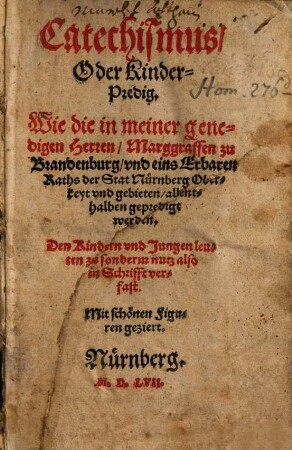 Catechismus/
Oder Kinder-
Predig.
Hom. 276
Wie die in meiner gene-
digen Herren/ Marggraffen zu
Brandenburg/ vnd eins Erbaren
Raths der Stat Nürnberg Ober-
keyt vnd gebieten/ allent-
halben gepredigt
werden.
Den Kindern vnd Jungen leu-
ten zu sonderm nutz also
in Schrifft ver-
fast.
Mit schönen Figu-
ren geziert.
Nürnberg.
M. D. LVII.